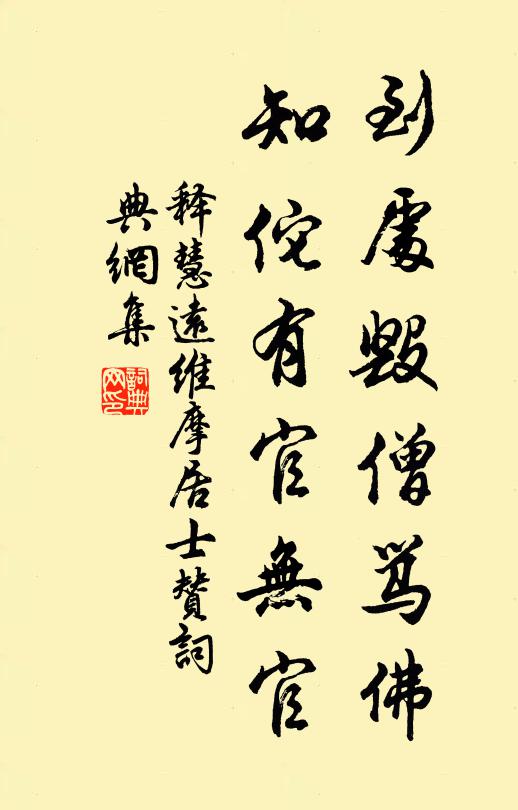 到處毀僧骂佛
知佗有官無官
释慧遠維摩居士贊詞
典網集
詞典網印